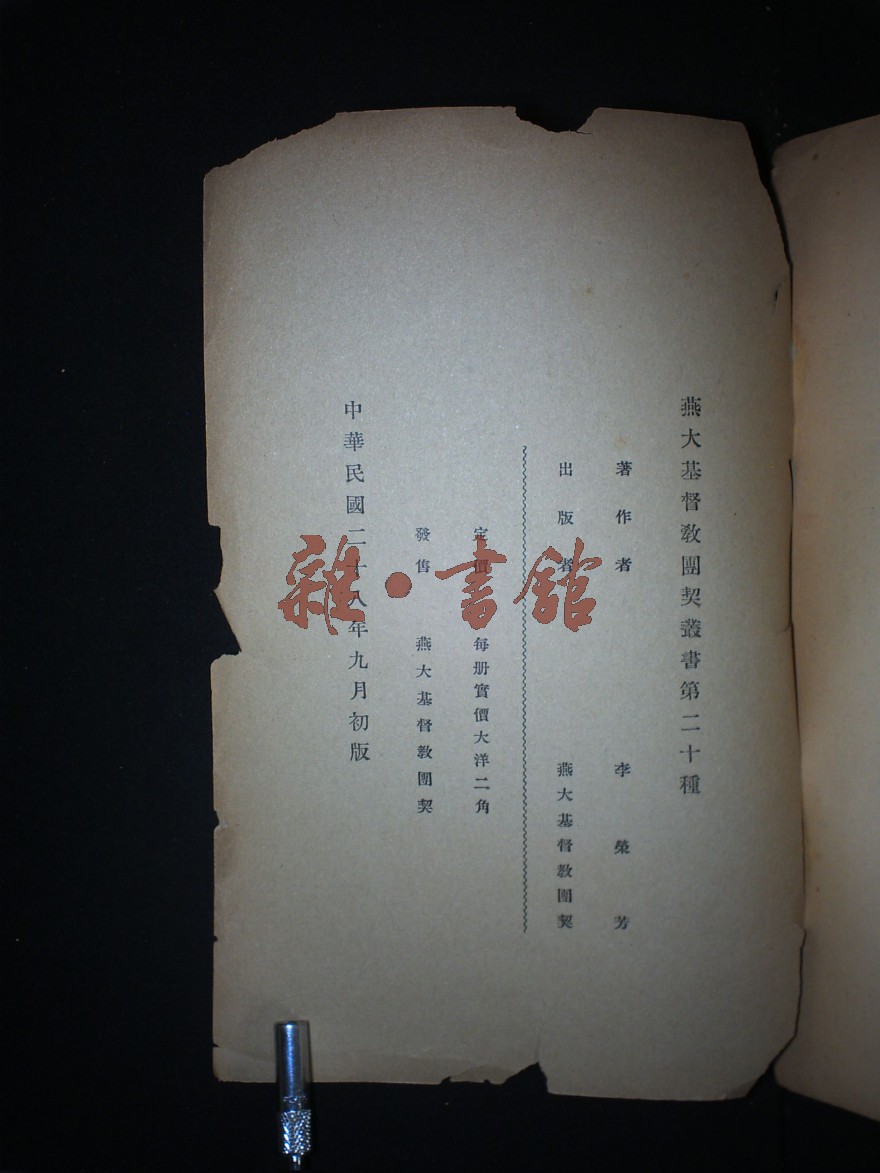 燕大基督教團契叢書第二十種
著作者 李榮芳
出版者 燕大基督教團契
定價 每册實價大洋二角
發售 燕大基督教團契
中華民國二十八年九月初版
雜·書館